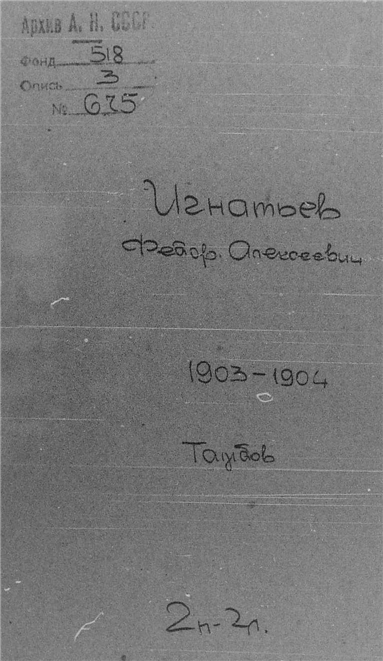 Архив А. Н. СССР.
Фонд 518
Опись 3
№ 675
Игнатьев
Федор Алексеевич
1903-1904
2п-2л.